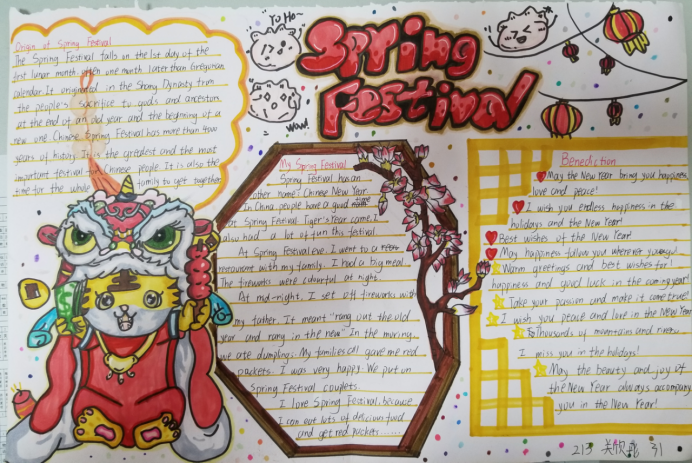 Spring
Festival
YoHo~
Wow!
Origin of Spring Festival
The Spring Festival falls on the 1st day of the
first lunar month, often one month later than Gregorian
calendar. It originated in the Shang Dynasty from
the people's sacrifice to gods and ancestors
at the end of an old year and the beginning of a
new one Chinese Spring Festival has more than 4000
years of history. It is the greatest and the most
important festival for Chinese people. It is also the
time for the whole family to get together
My Spring Festival
Spring Festival has an
other name: Chinese New Year.
In China, people have a good time
at Spring Festival. Tiger's Year came. I
also had a lot of fun this festival.
At Spring Festival eve. I went to a
restaurant with my family. I had a big meal.
The fireworks were colourful at night.
At mid-night. I set off fireworks with
my father. It meant "rang out the old
year and rang in the new" In the morning.
we ate dumplings. My families all gave me red
packets. I was very happy. We put on
Spring Festival couplets.
I love Spring Festival, because
I can eat lots of delicious food
and get red packets......
Benediction
May the New Year bring you happiness,
love and peace!
I wish you endless happiness in the
holidays and the New Year!
Best wishes of the New Year!
May happiness follow you wherever you go!
Warm greetings and best wishes for
happiness and good luck in the coming year!
Take your passion and make it come true!
I wish you peace and love in the New Year
Thousands of mountains and rivers
I miss you in the holidays!
May the beauty and joy of
the New Year always accompany
you in the New Year!
213 31